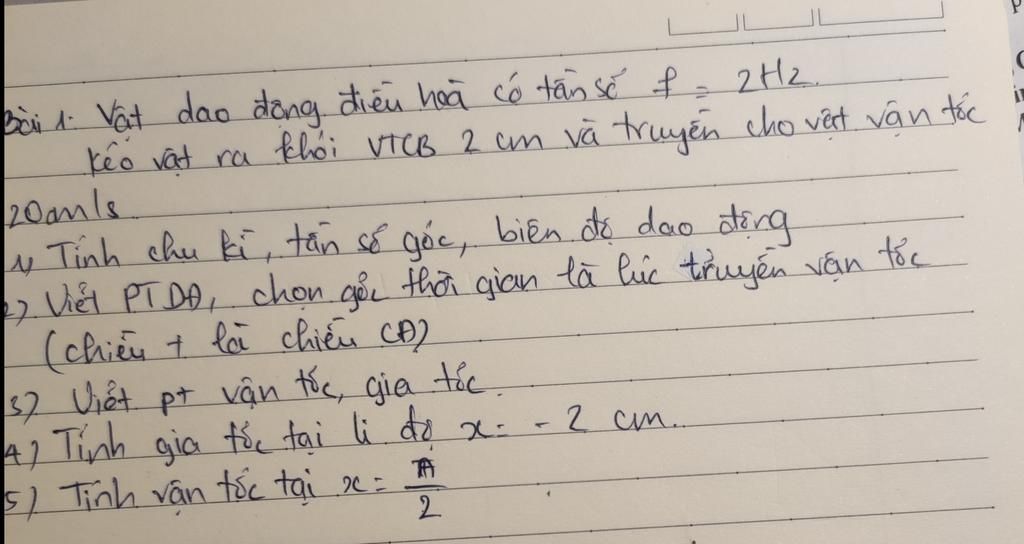 Bài 1: Vật dao động điều hoà có tần số f = 2Hz.
Kéo vật ra khỏi VTCB 2 cm và truyền cho vật vận tốc
20cm/s
1) Tính chu kì, tần số góc, biên độ dao động
2) Viết PTDĐ, chọn gốc thời gian là lúc truyền vận tốc
(chiều + là chiều CĐ)
3) Viết pt vận tốc, gia tốc.
4) Tính gia tốc tại li độ x = - 2 cm.
5) Tính vận tốc tại x = A/2